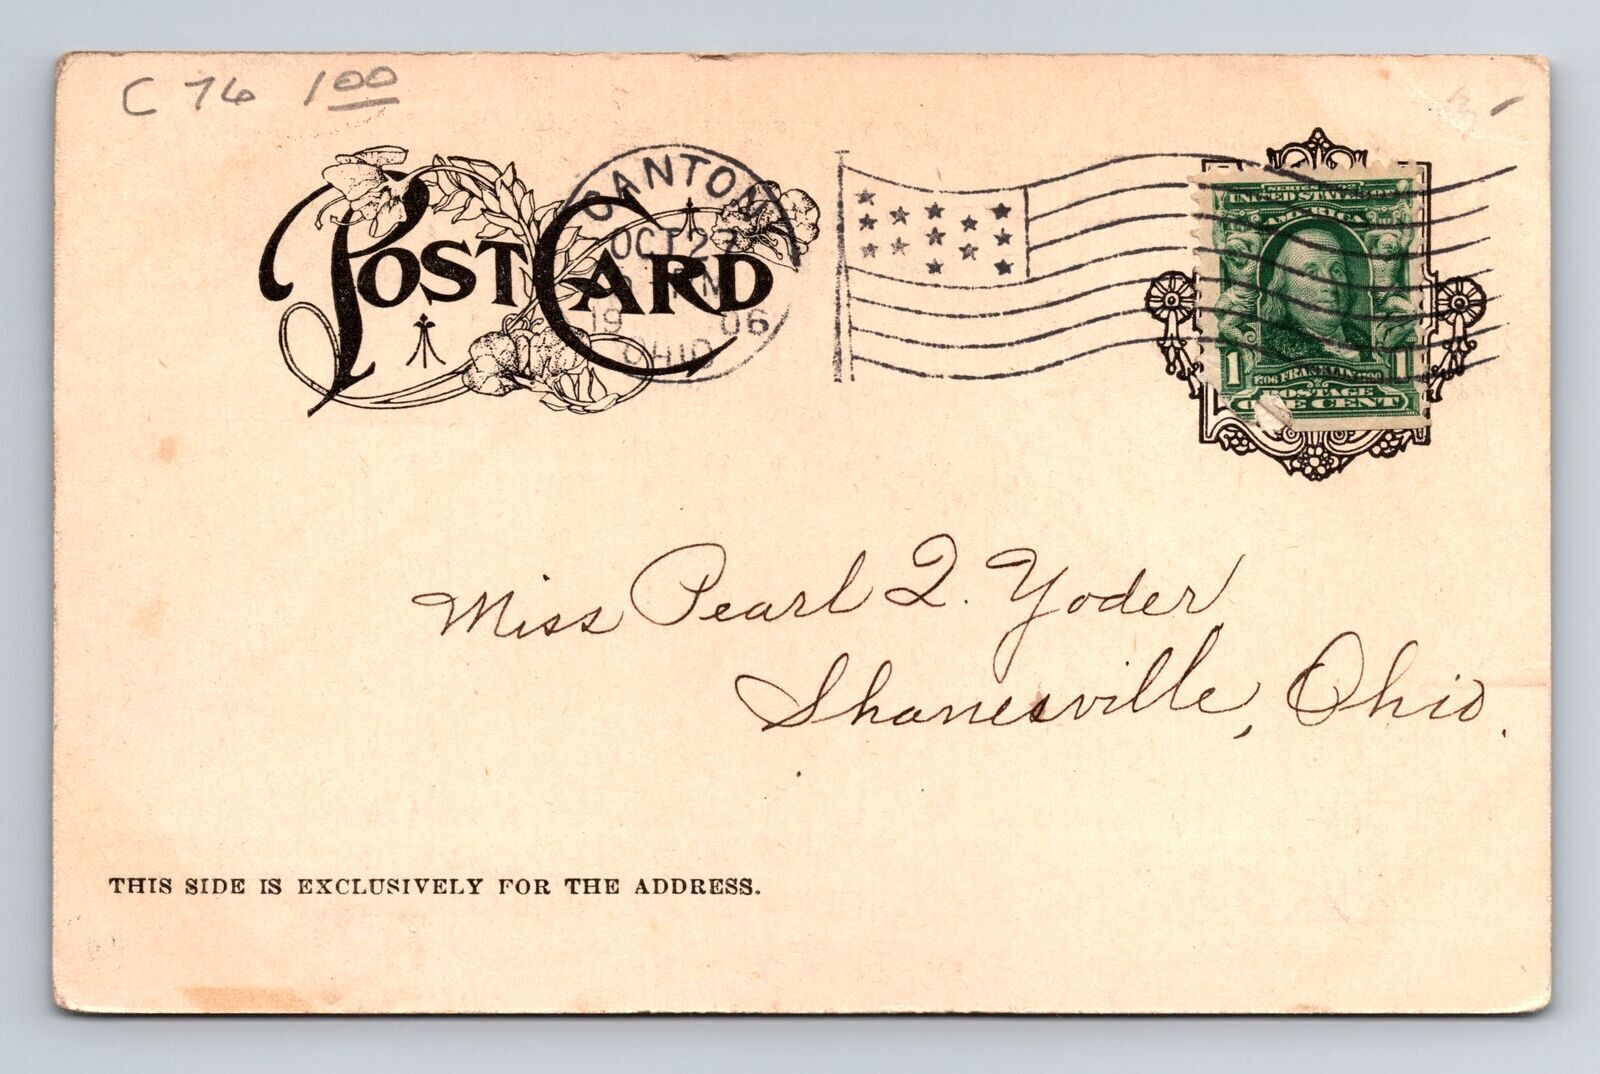 C 76 1 00
POST CARD
CANTON
OCT 27
M
19 06
OHIO
UNITED STATES OF
AMERICA
1 1706 FRANKLIN 1790 1
POSTAGE
ONE CENT
Miss Pearl Q. Yoder
Shanesville, Ohio.
THIS SIDE IS EXCLUSIVELY FOR THE ADDRESS.